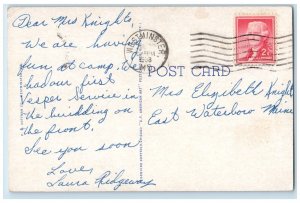 Dear Mrs Knights
We are having
fun at camp. We
had our first
Vesper Service in
the building on
the front.
See you soon
Love,
Laura Ridgeway
WESTMINSTER
1958
MD.
POST CARD
2¢
Mrs Elizabeth Knight
East Waterboro Maine